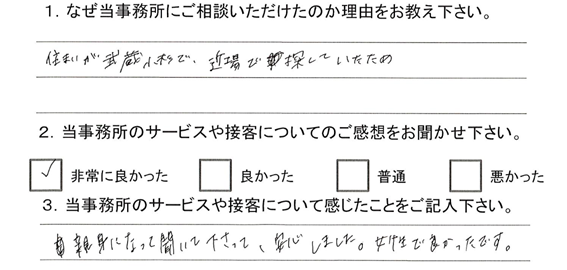 1. なぜ当事務所にご相談いただけたのか理由をお教え下さい。
住まいが武蔵小杉で、近場で探していたため
2. 当事務所のサービスや接客についてのご感想をお聞かせ下さい。
✓ 非常に良かった 良かった 普通 悪かった
3. 当事務所のサービスや接客について感じたことをご記入下さい。
親身になって聞いて下さって、安心しました。女性で良かったです。